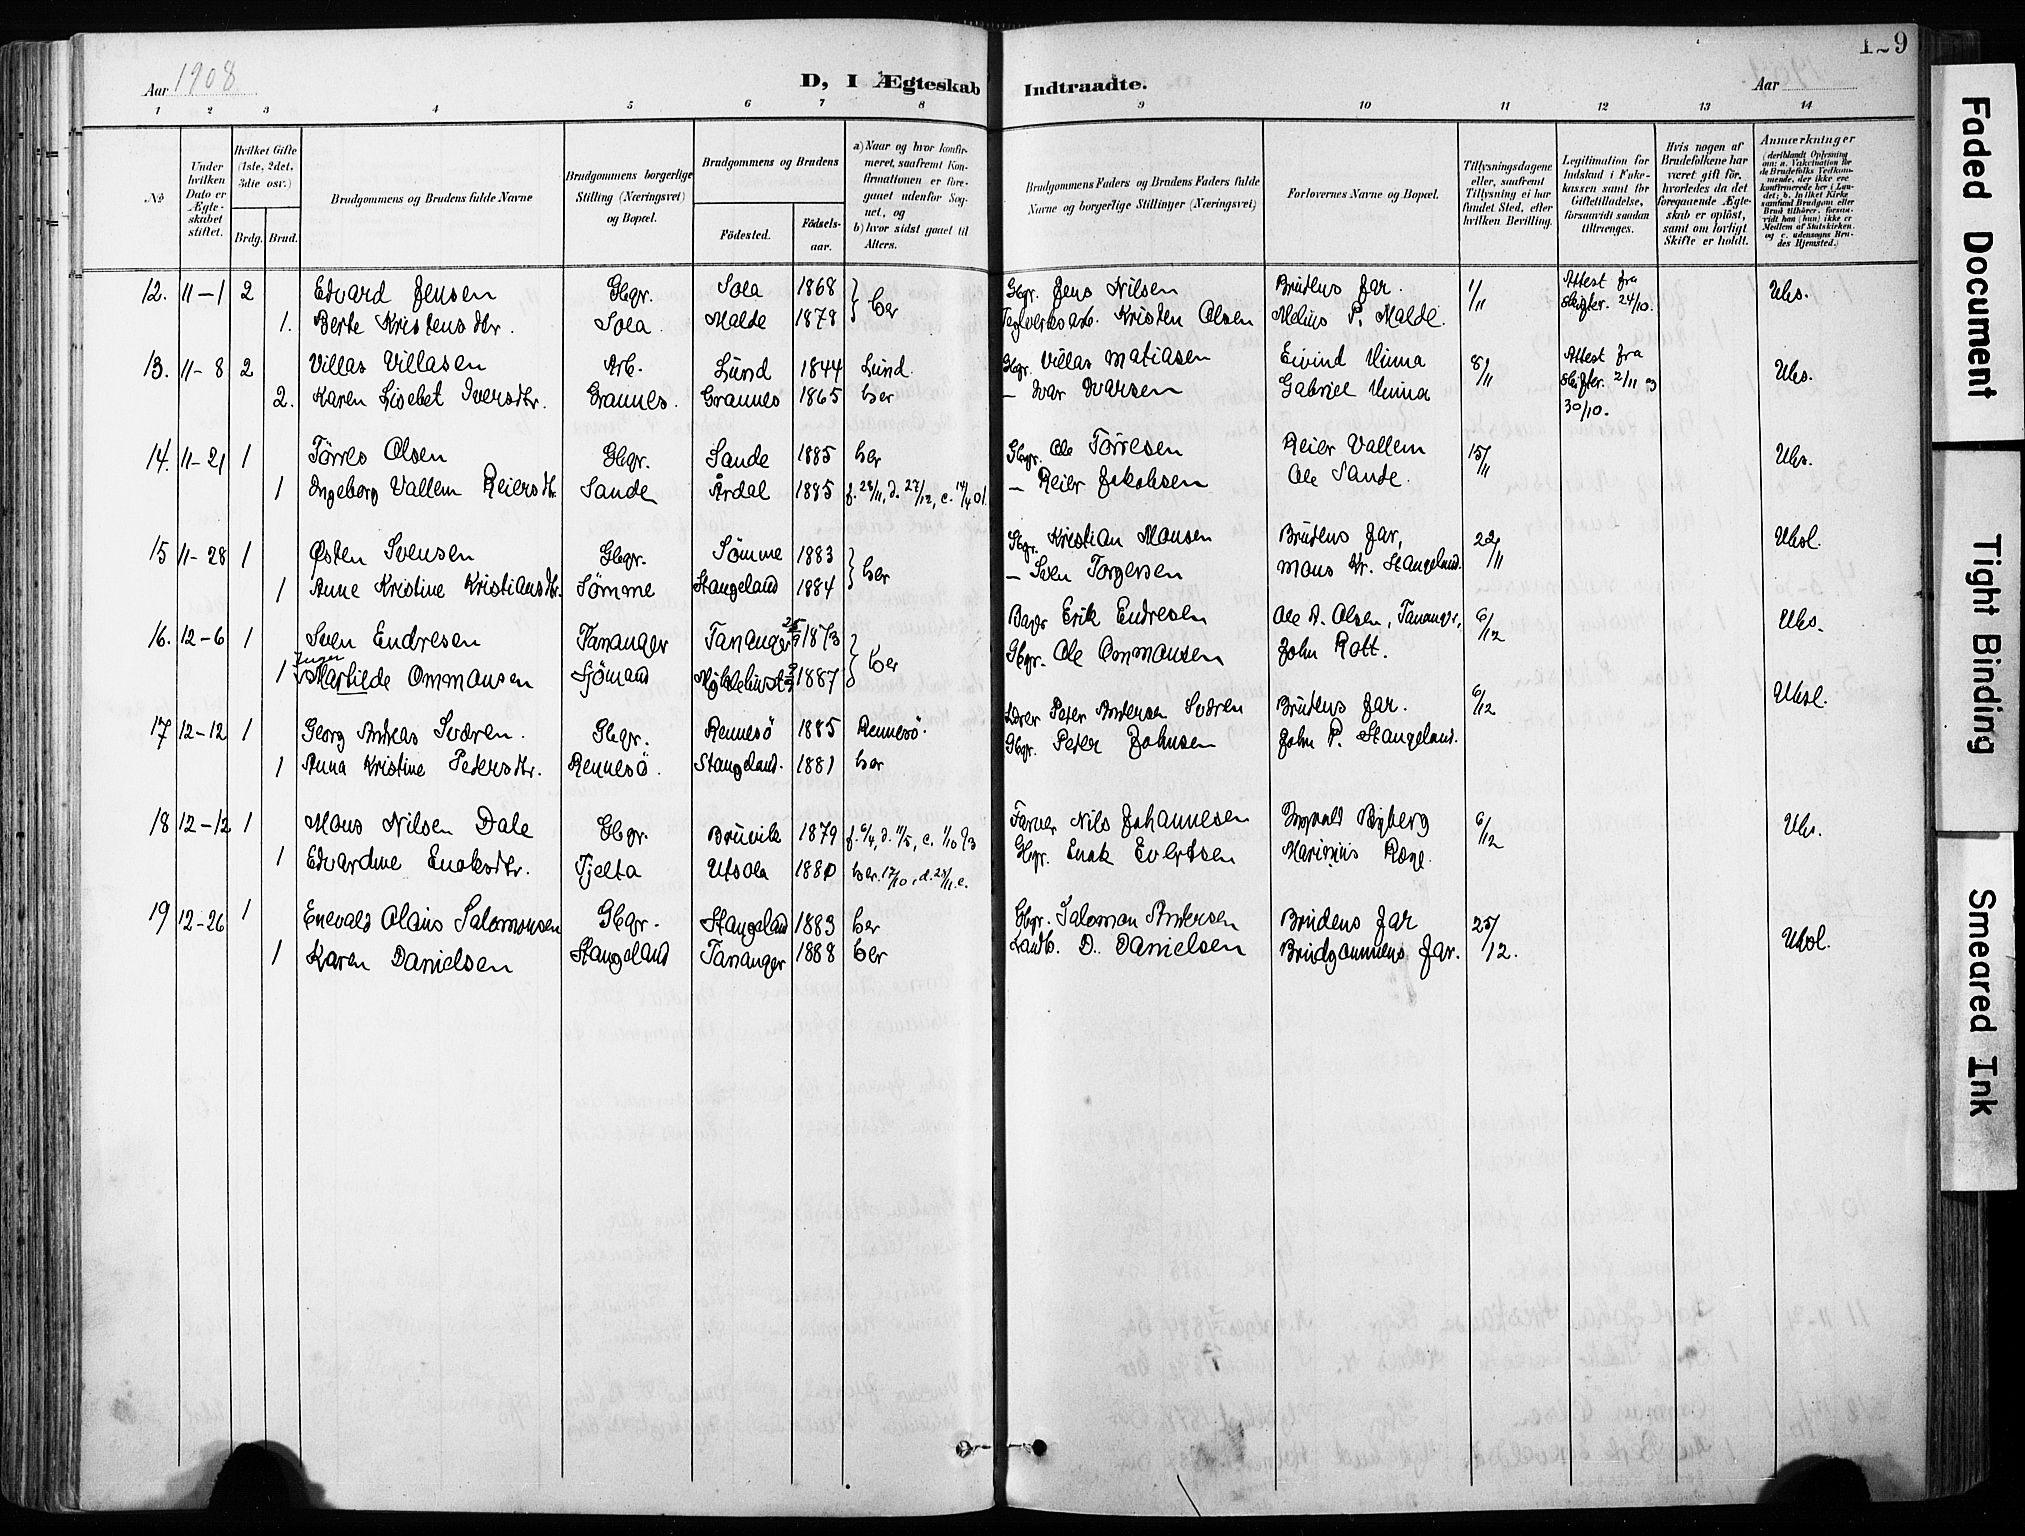 Aar 1908
D, I Ægteskab Indtraadte.
Aar
129
1 2 3 4 5 6 7 8 9 10 11 12 13 14
No
Under hvilken Dato er Ægteskabet stiftet.
Hvilket Gifte (1ste, 2det, 3die osv.)
Brdg. Brud.
Brudgommens og Brudens fulde Navne
Brudgommens borgerlige Stilling (Næringsvei) og Bopæl.
Brudgommens og Brudens
Fødested. Fødselsaar.
a) Naar og hvor konfirmeret, saafremt Konfirmationen er foregaaet udenfor Sognet, og
b) hvor sidst gaaet til Alters.
Brudgommens Faders og Brudens Faders fulde Navne og borgerlige Stillinger (Næringsvei)
Forlovernes Navne og Bopæl.
Tillysningsdagene eller, saafremt Tillysning ei har fundet Sted, efter hvilken Bevilling.
Legitimation for Indskud i Enkekassen samt for Giftetilladelse, forsaavidt saadan tiltrænges.
Hvis nogen af Brudefolkene har været gift før, hvorledes da det foregaaende Ægteskab er opløst, samt om lovligt Skifte er holdt.
Anmærkninger
12. 11-1 2 Edvard Jensen Gbgr. Sola 1868 her Gbgr. Jens Nilsen Brudens Far. 1/11 Attest fra Skifter. 24/10. Uks.
1. Berte Kristensdtr. Sola. Malde 1878 Teglverksarb. Kristen Olsen Melius P. Malde.
13. 11-8 2 Villas Villasen Arb. Lund 1844 Lund. Gbgr. Villas Matiasen Eivind Vinna 8/11 Attest fra Skifter. 2/11 og 30/10. Uks.
2. Karen Lisebet Iversdtr. Grannes. Grannes 1865 her — Ivar Ivarsen Gabriel Vinna
14. 11-21 1 Tørres Olsen Gbgr. Sande 1885 her Gbgr. Ole Tørresen Reier Vallem 15/11 Uks.
1 Ingeborg Vallem Reiersdtr. Sande Årdal 1885 f. 28/11, d. 27/12, c. 14/4 01. — Reier Jakobsen Ole Sande.
15 11-28 1 Østen Svensen Gbgr. Sømme 1883 her Gbgr. Kristian Monsen Brudens Far, 22/11 Uksl.
1 Anne Kristine Kristiansdtr. Sømme Stangeland 1884 — Sven Torgersen Mons Kr. Stangeland.
16. 12-6 1 Sven Endresen Tananger Tananger 1873 her Erik Endresen Ole A. Olsen, Tananger, 6/12 Uks.
1 Inger Martilde Ommunsen Sjømand 1887 Gbgr. Ole Ommunsen John Rott.
17 12-12 1 Georg Andreas Sværen. Gbgr. Rennesö 1885 Rennesö. Lærer Peter Andersen Sværen Brudens Far. 6/12 Uksl.
1 Anna Kristine Pedersdtr. Rennesö. Stangeland. 1881 her Gbgr. Peter Johnsen John P. Stangeland.
18 12-12 1 Mons Nilsen Dale Gbgr. Bruvik 1879 f. 6/4, d. 11/5, c. 1/10 93 Farver Nils Johannesen 6/12 Uks.
1 Edvardine Enoksdtr. Tjelta Utsola 1880 her. 17/10, d. 28/11. c. Gbgr. Enok Evertsen
19 12-26 1 Enevald Olaus Salomonsen Gbgr. Stangeland 1883 her Gbgr. Salomon Andersen Brudens Far 25/12. Uksl.
1 Karen Danielsen Stangeland Tananger 1888 her Landh. D. Danielsen Brudgommens Far.
Faded Document
Tight Binding
Smeared Ink